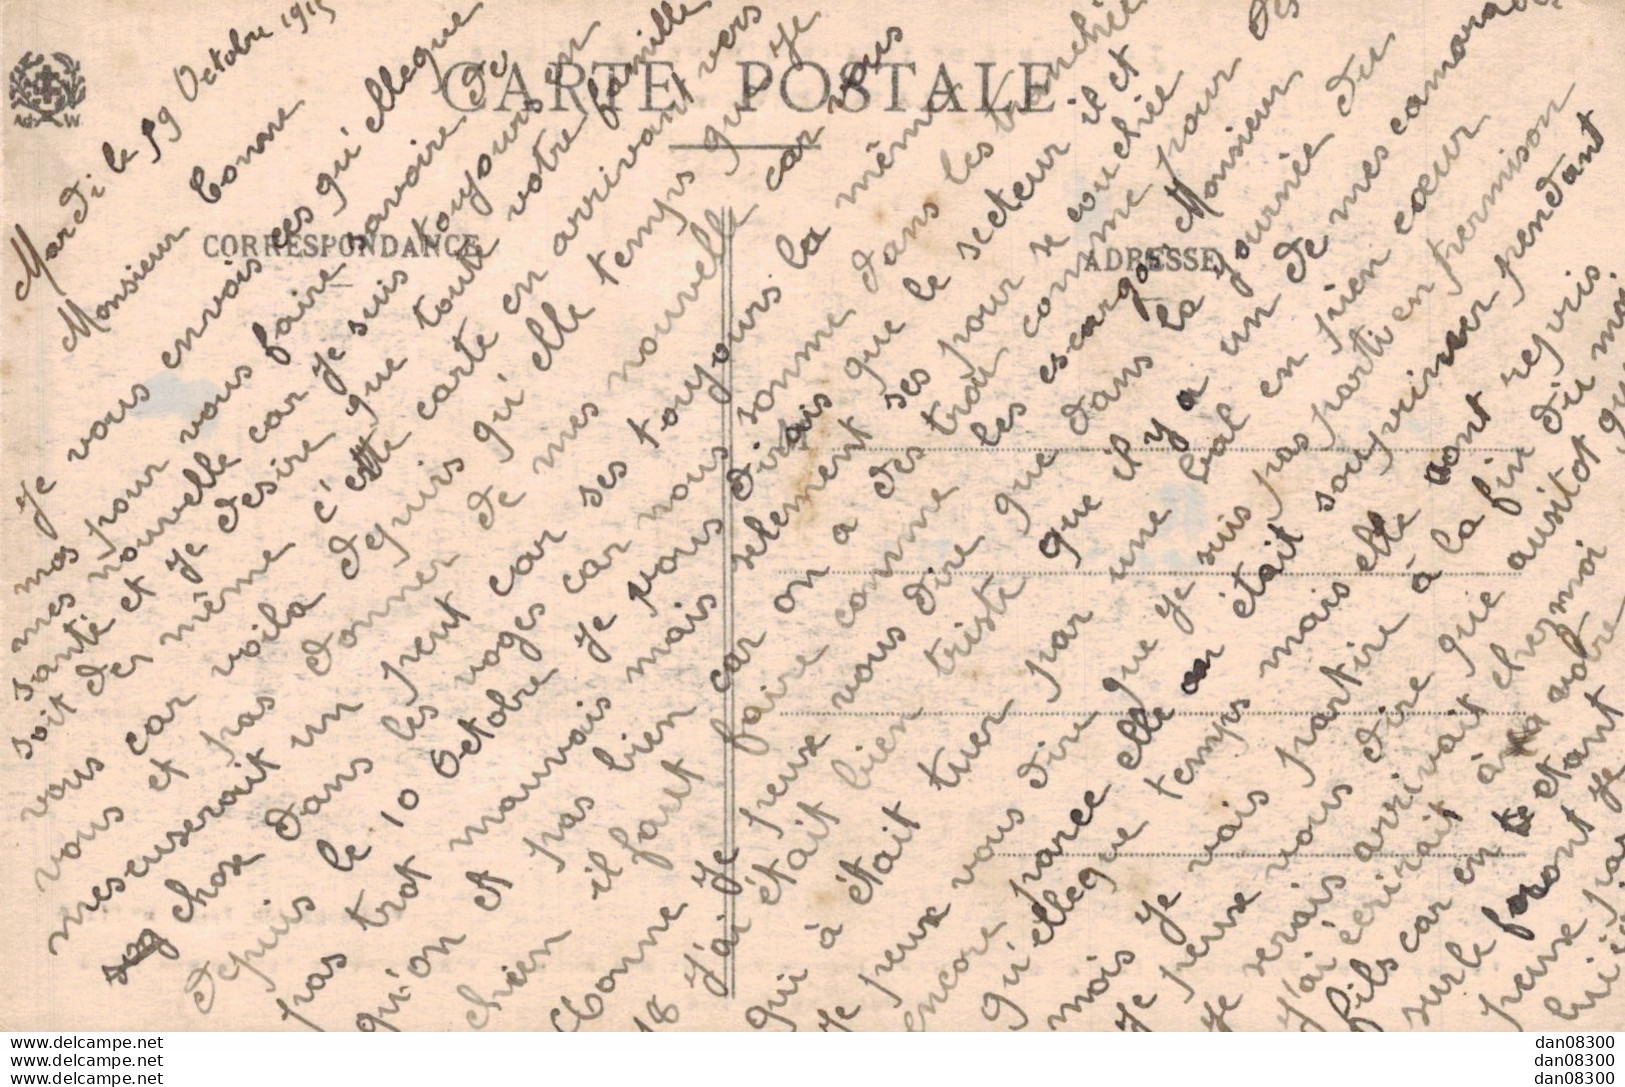 CARTE POSTALE
CORRESPONDANCE
ADRESSE
A W
Mardi le 19 Octobre 1915
Monsieur Conne
Je vous envois ces qu'elleque
mos pour vous faire savoire de
mes nouvelle car je suis toujours en
santé et je desire que toute votre famille
soit de même c'ette carte en arrivant vers
vous car voila depuis qu'elle temps que je
vous et pas donner de mes nouvelle car vous
meseuserait un peut car ses toujours la même
chose dans les voges car nous somme dans les tranchée
depuis le 10 Octobre je vous dirais que le secteur il et
pas trot mauvais mais selement ses pour se couchée
qu'on et pas bien car on a des trou comme pour des
chien il faut faire comme les escargo Monsieur
Conne je peuse vous dire que dans la journée du
18 j'ai était bien triste que il y a un de mes camarade
qui à était tuer par une bal en plien cœur
je peuse vous dire que je suis pas parti en permison
encore parce elle était souprimer pendant
qu'elleque temps mais elle sont repris
mois je vais partire à la fin du moi
je peuse vous dire que ausitot que
je serais arrivait chez moi
j'ai écrirait à votre
fils car en etant
sur le front je
peuse pas